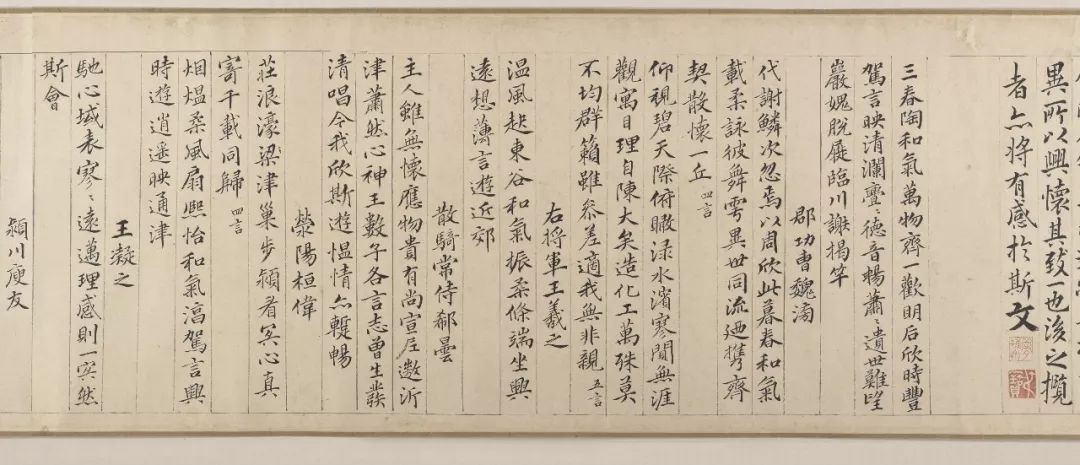 異所以興懷其致一也後之攬
者亦將有感於斯文
三春陶和氣萬物齊一歡明后欣時豐
駕言映清瀾亹〻德音暢蕭〻遺世難望
巖媿脫屣臨川謝揭竿
郡功曹魏滂
代謝鱗次忽焉以周欣此暮春和氣
載柔詠彼舞雩異世同流廼攜齊
契散懷一丘 四言
仰視碧天際俯瞰淥水濱寥閴無涯
觀寓目理自陳大矣造化工萬殊莫
不均群籟雖參差適我無非親 五言
右將軍王羲之
温風起東谷和氣振柔條端坐興
遠想薄言遊近郊
散騎常侍郗曇
主人雖無懷應物貴有尚宣尼遨沂
津蕭然心神王數子各言志曾生發
清唱今我欣斯遊愠情亦蹔暢
滎陽桓偉
莊浪濠梁津巢步潁者冥心真
寄千載同歸 四言
烟熅柔風扇熙怡和氣湻駕言興
時遊逍遥映通津
王凝之
馳心域表寥〻遠邁理感則一冥然
斯會
潁川庾友